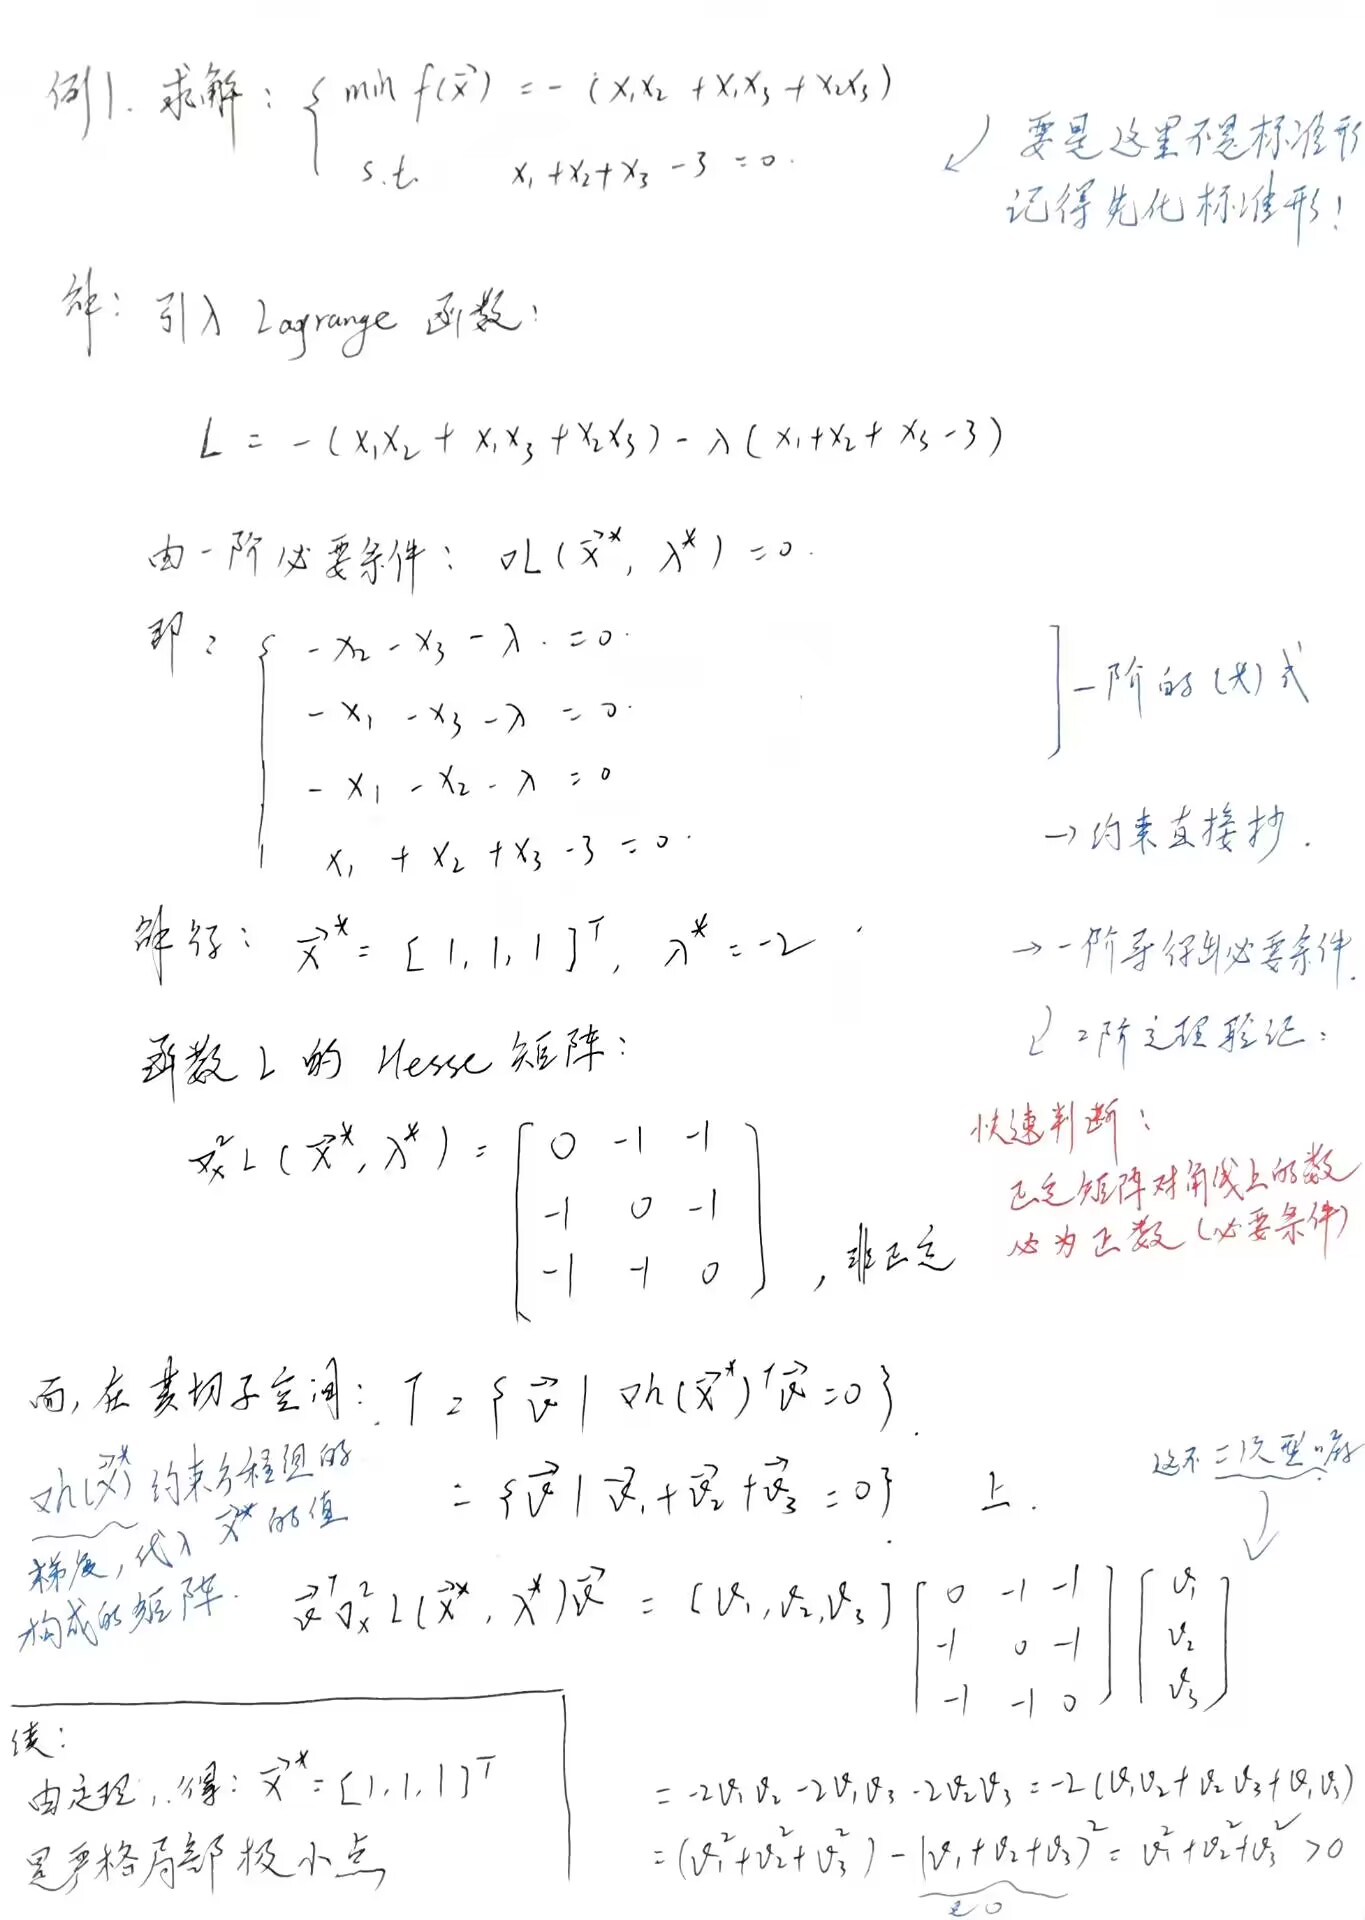 例1. 求解: { min f(x⃗) = -(x₁x₂ + x₁x₃ + x₂x₃)
s.t. x₁+x₂+x₃-3=0.
要是这里不是标准形
记得先化标准形!
解: 引入 Lagrange 函数:
L = -(x₁x₂ + x₁x₃ + x₂x₃) - λ(x₁+x₂+x₃-3)
由一阶必要条件: ∇L(x⃗*, λ*) = 0.
即: { -x₂ - x₃ - λ = 0.
-x₁ - x₃ - λ = 0.
] 一阶的(*)式
-x₁ - x₂ - λ = 0
x₁ + x₂ + x₃ - 3 = 0.
→ 约束直接抄.
解得: x⃗* = [1, 1, 1]ᵀ, λ* = -2
→ 一阶导得到必要条件.
2阶定理验证:
函数 L 的 Hesse 矩阵:
快速判断:
正定矩阵对角线上的数
必为正数(必要条件)
∇ₓ²L(x⃗*, λ*) = [ 0 -1 -1
-1 0 -1
-1 -1 0 ], 非正定
而, 在其切子空间: T = {v⃗ | ∇h(x⃗*)ᵀv⃗ = 0}.
= {v⃗ | v⃗₁ + v⃗₂ + v⃗₃ = 0} 上.
∇h(x⃗*) 约束方程组的
梯度, 代入 x⃗* 的值
构成的矩阵.
这不二次型嘛
v⃗ᵀ∇ₓ²L(x⃗*, λ*)v⃗ = [v₁, v₂, v₃] [ 0 -1 -1 ] [ v₁ ]
-1 0 -1 v₂
-1 -1 0 v₃
= -2v₁v₂ - 2v₁v₃ - 2v₂v₃ = -2(v₁v₂ + v₂v₃ + v₁v₃)
= (v₁² + v₂² + v₃²) - (v₁ + v₂ + v₃)² = v₁² + v₂² + v₃² > 0
=0
续:
由定理, 得: x⃗* = [1, 1, 1]ᵀ
是严格局部极小点